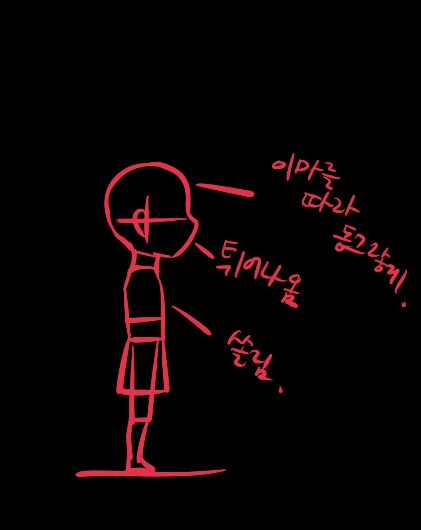 이마를
따라
동그랗게.
튀어나옴
쏠림.